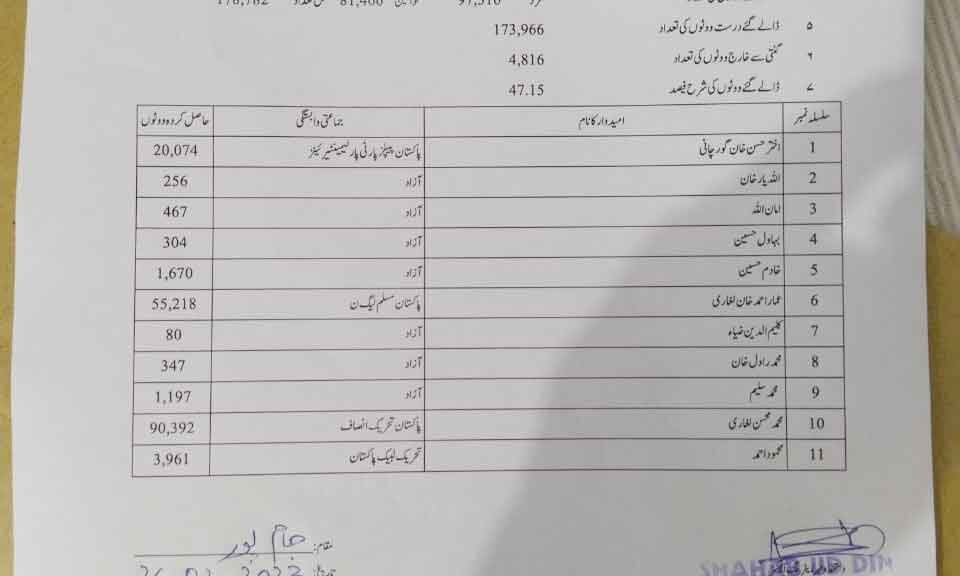 مرد 97,316 خواتین 81,466 کل تعداد 178,782
۵ ڈالے گئے درست ووٹوں کی تعداد 173,966
۶ گنتی سے خارج ووٹوں کی تعداد 4,816
۷ ڈالے گئے ووٹوں کی شرح فیصد 47.15
سلسلہ نمبر امیدوار کا نام جماعتی وابستگی حاصل کردہ ووٹوں
1 اختر حسن خان گورچانی پاکستان پیپلز پارٹی پارلیمینٹیرینز 20,074
2 اللہ یار خان آزاد 256
3 امان اللہ آزاد 467
4 بہاول حسین آزاد 304
5 خادم حسین آزاد 1,670
6 عمار احمد خان لغاری پاکستان مسلم لیگ ن 55,218
7 کلیم الدین ضیاء آزاد 80
8 محمد رادل خان آزاد 347
9 محمد سلیم آزاد 1,197
10 محمد محسن لغاری پاکستان تحریک انصاف 90,392
11 محمود احمد تحریک لبیک پاکستان 3,961
مقام: جام پور